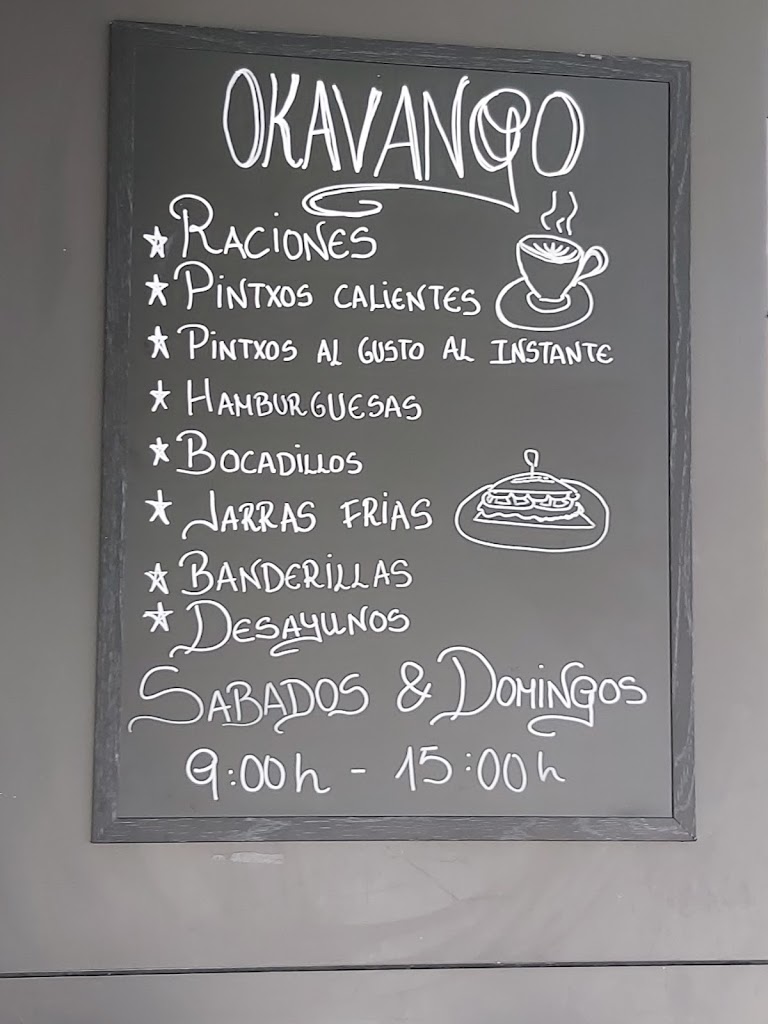 OKAVANGO
★ RACIONES
★ PINTXOS CALIENTES
★ PINTXOS AL GUSTO AL INSTANTE
★ HAMBURGUESAS
★ BOCADILLOS
★ JARRAS FRIAS
★ BANDERILLAS
★ DESAYUNOS
SABADOS & DOMINGOS
9:00h - 15:00h